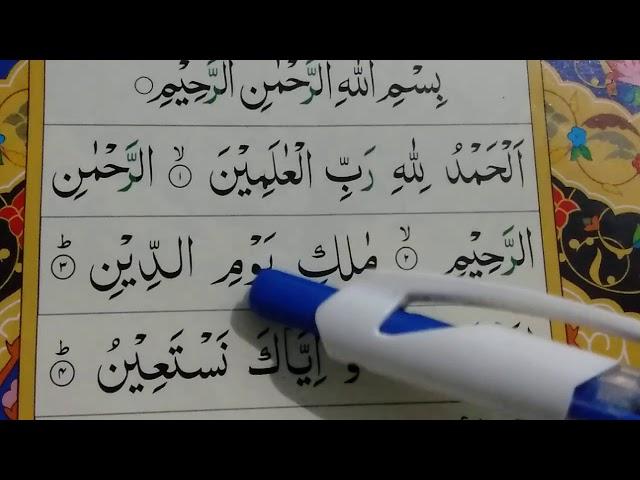 بِسْمِ اللّٰهِ الرَّحْمٰنِ الرَّحِيْمِ ○
اَلْحَمْدُ لِلّٰهِ رَبِّ الْعٰلَمِيْنَ ۙ﴿۱﴾ الرَّحْمٰنِ
الرَّحِيْمِ ۙ﴿۲﴾ مٰلِكِ يَوْمِ الدِّيْنِ ؕ﴿۳﴾
وَ اِيَّاكَ نَسْتَعِيْنُ ؕ﴿۴﴾